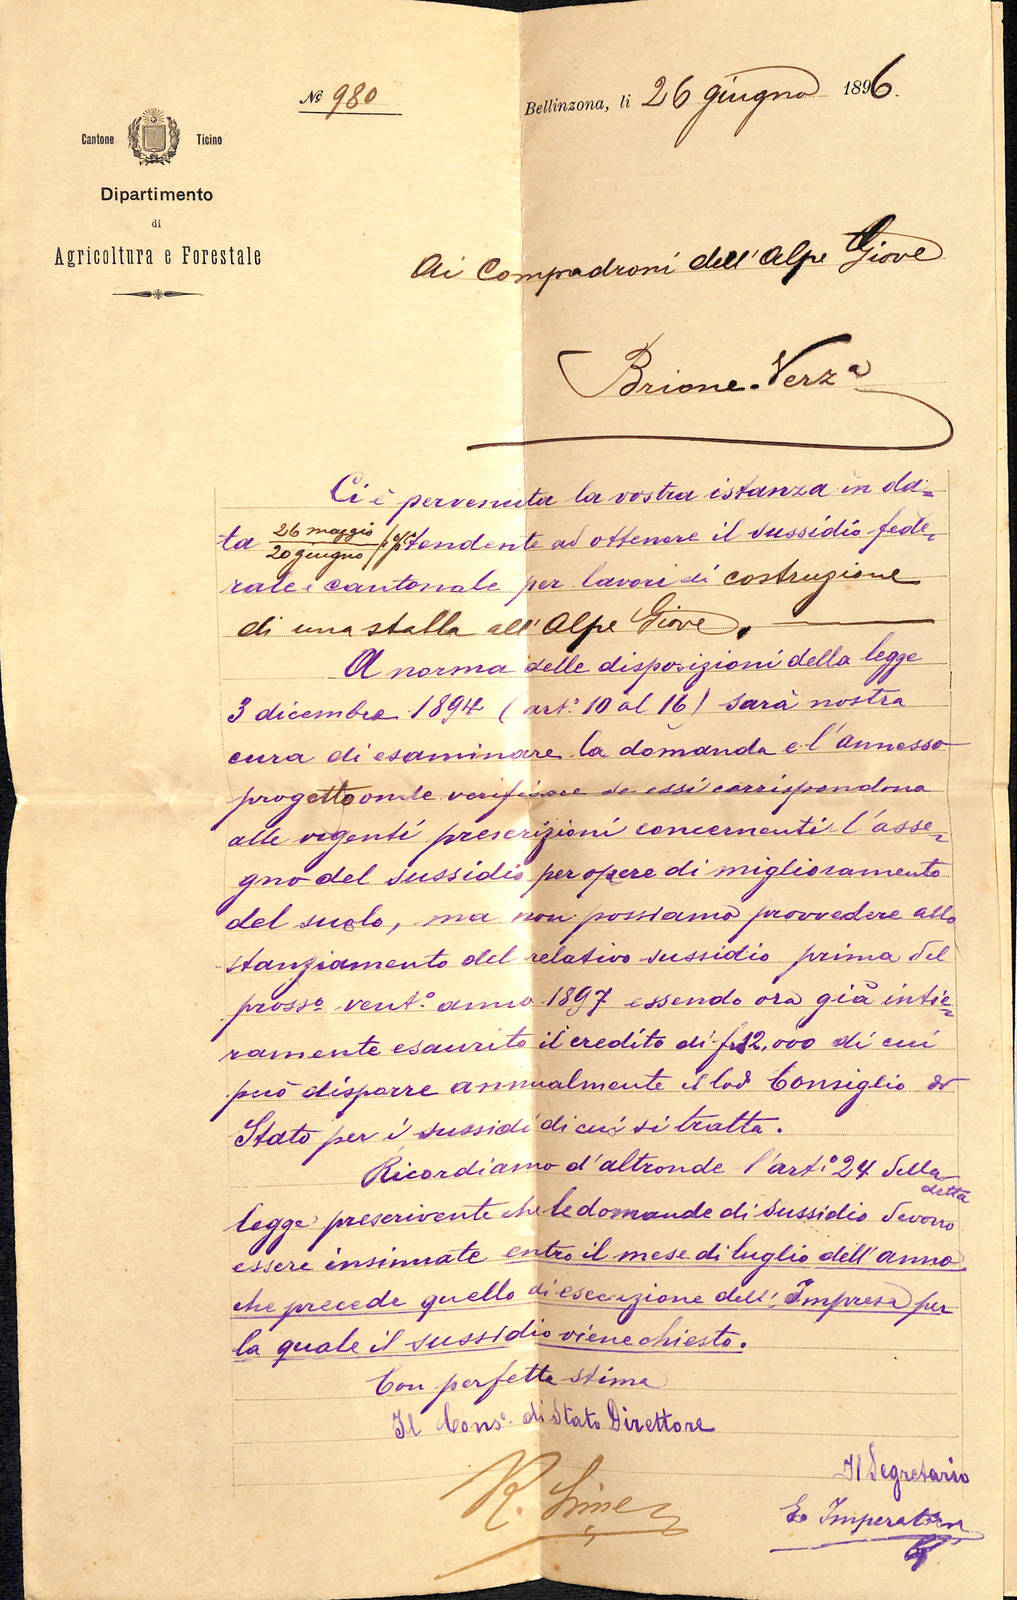 Nº 980
Bellinzona, li 26 giugno 1896.
Cantone Ticino
Dipartimento
di
Agricoltura e Forestale
Ai Compadroni dell'Alpe Giove
Brione-Verzª
Ci è pervenuta la vostra istanza in da=
ta 26 maggio / 20 giugno tendente ad ottenere il sussidio fede=
rale e cantonale per lavori di costruzione
di una stalla all'Alpe Giove.
A norma delle disposizioni della legge
3 dicembre 1894 (art.º 10 al 16) sarà nostra
cura di esaminare la domanda e l'annesso
progetto onde verificare se essi corrispondono
alle vigenti prescrizioni concernenti l'asse=
gno del sussidio per opere di miglioramento
del suolo, ma non possiamo provvedere allo
stanziamento del relativo sussidio prima del
prossº. vent.º anno 1897 essendo ora già intie=
ramente esaurito il credito di fr. 12,000 di cui
può disporre annualmente il lod. Consiglio di
Stato per i sussidi di cui si tratta.
Ricordiamo d'altronde l'art.º 24 della
detta
legge prescrivente che le domande di sussidio devono
essere insinuate entro il mese di luglio dell'anno
che precede quello di esecuzione dell'Impresa per
la quale il sussidio viene chiesto.
Con perfetta stima
Il Cons.e di Stato Direttore
R. Simen
Il Segretario
E. Imperatori